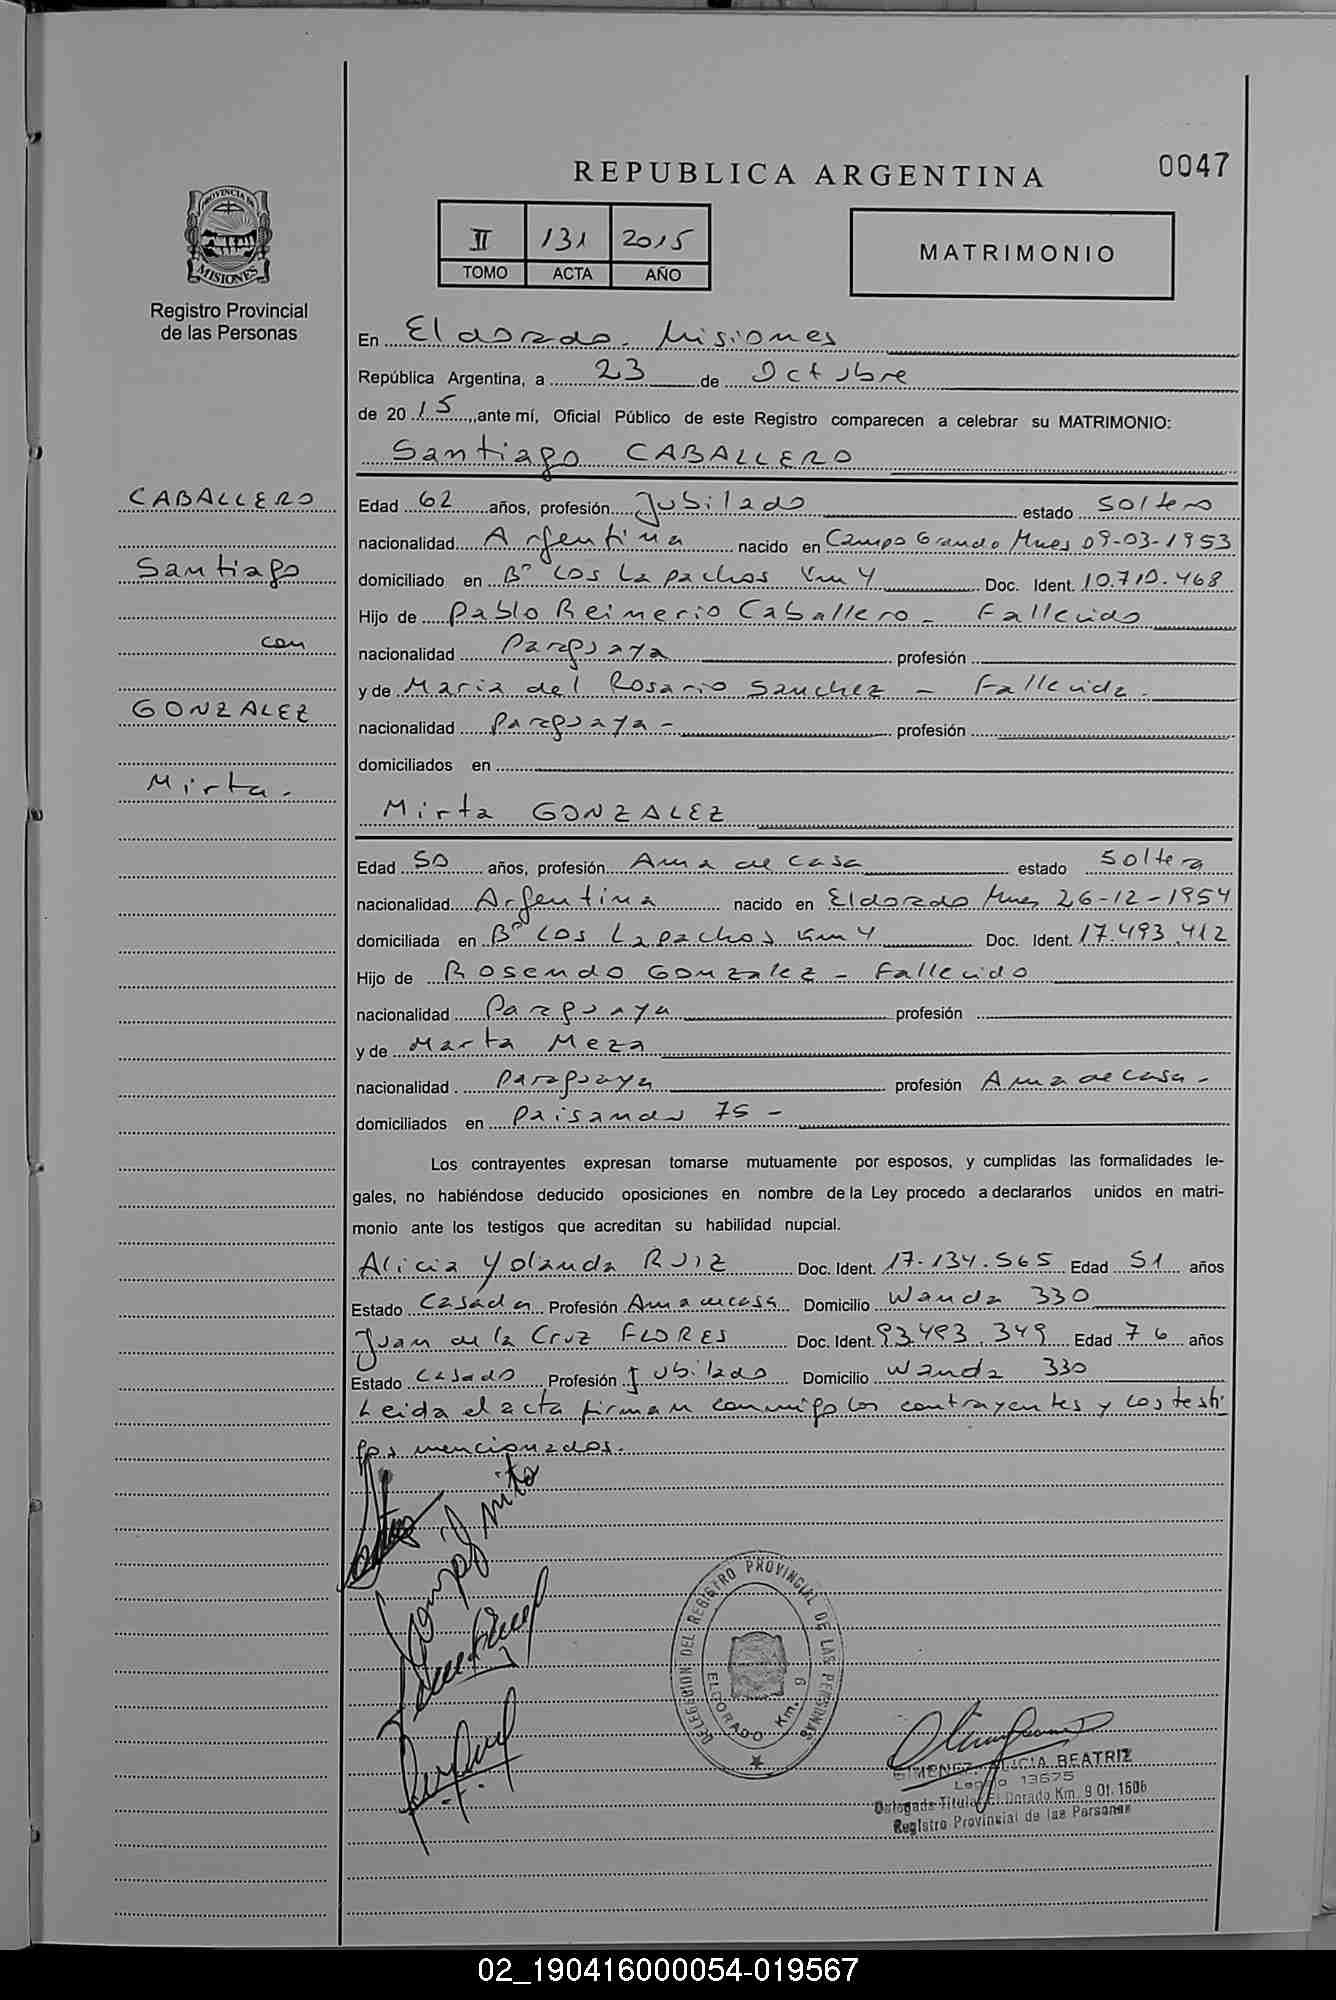 REPUBLICA ARGENTINA
0047
II 131 2015
TOMO ACTA AÑO
MATRIMONIO
PROVINCIA DE
MISIONES
Registro Provincial
de las Personas
CABALLERO
Santiago
con
GONZALEZ
Mirta.
En Eldorado. Misiones
República Argentina, a 23 de Octubre
de 2015, ante mí, Oficial Público de este Registro comparecen a celebrar su MATRIMONIO:
Santiago CABALLERO
Edad 62 años, profesión Jubilado estado soltero
nacionalidad Argentina nacido en Campo Grande Mnes 09-03-1953
domiciliado en Bº Los Lapachos Km 4 Doc. Ident. 10.710.468
Hijo de Pablo Reimerio Caballero - Fallecido
nacionalidad Paraguaya profesión
y de Maria del Rosario Sanchez - Fallecida.
nacionalidad Paraguaya - profesión
domiciliados en
Mirta GONZALEZ
Edad 50 años, profesión Ama de casa estado soltera
nacionalidad Argentina nacido en Eldorado Mnes 26-12-1954
domiciliada en Bº Los Lapachos Km 4 Doc. Ident. 17.493.412
Hijo de Rosendo Gonzalez - Fallecido
nacionalidad Paraguaya profesión
y de Marta Meza
nacionalidad Paraguaya profesión Ama de casa -
domiciliados en Paisandu 75 -
Los contrayentes expresan tomarse mutuamente por esposos, y cumplidas las formalidades le-
gales, no habiéndose deducido oposiciones en nombre de la Ley procedo a declararlos unidos en matri-
monio ante los testigos que acreditan su habilidad nupcial.
Alicia Yolanda RUIZ Doc. Ident. 17.134.565 Edad 51 años
Estado Casada Profesión Ama de casa Domicilio Wanda 330
Juan de la Cruz FLORES Doc. Ident. 93.493.349 Edad 76 años
Estado Casado Profesión Jubilado Domicilio Wanda 330
Leida el acta firman conmigo los contrayentes y los testi
gos mencionados.
DELEGACION DEL REGISTRO PROVINCIAL DE LAS PERSONAS
ELDORADO Km. 9
GIMENEZ, ALICIA BEATRIZ
Legajo 13675
Delegada Titular El Dorado Km. 9 Of. 1606
Registro Provincial de las Personas
02_190416000054-019567